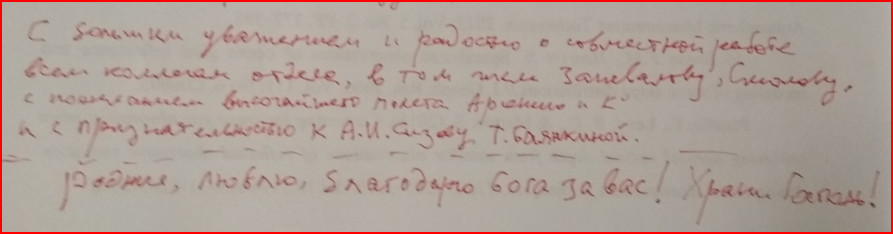 С большим уважением и радостью о совместной работе
всем коллегам отдела, в том числе Завьялову, Смолову,
с пожеланием высочайшего полета Арошно и К°
и с признательностью к А.И. Сизову, Т. Баянкиной.
Родные, люблю, благодарю Бога за вас! Храни Господь!